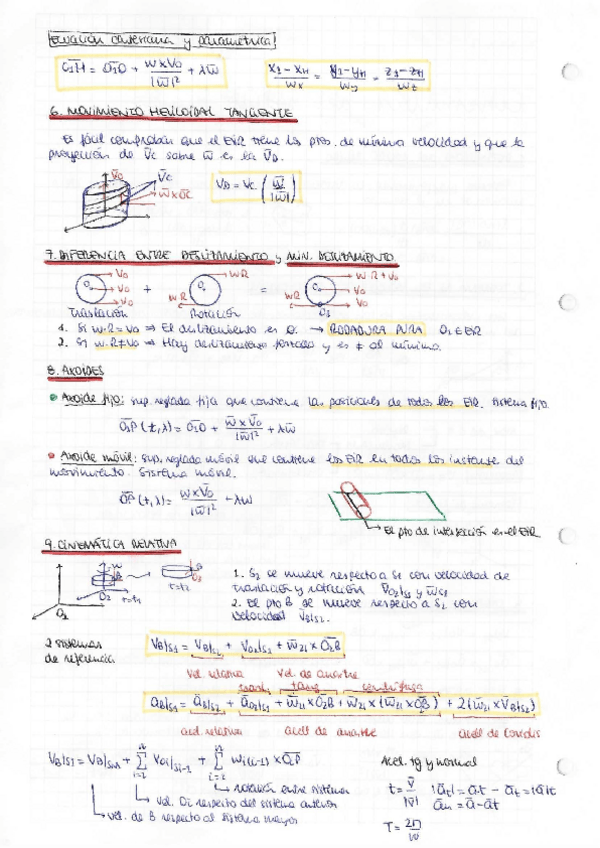 Ecuación cartesiana y paramétrica
O₁H = O₁O + w×V₀/|w|² + λw    x₁-x_H/w_x = y₁-y_H/w_y = z₁-z_H/w_z
6. MOVIMIENTO HELICOIDAL TANGENTE
Es fácil comprobar que el EIR tiene los ptos. de mínima velocidad y que la
proyección de Vc sobre w es la
V_D = V_C (w/|w|)
w×OC
7. DIFERENCIA ENTRE DESLIZAMIENTO y MIN. DESLIZAMIENTO
V₀ + wR = w·R+V₀
Traslación Rotación
1. Si w·R=V₀ ⇒ El deslizamiento es 0. → RODADURA PURA O₂∈EIR
2. Si w·R≠V₀ ⇒ Hay deslizamiento forzado y es ≠ al mínimo.
8. AXOIDES
Axoide fijo: sup. reglada fija que contiene las posiciones de todos los EIR. Sistema fijo.
O₁P (t,λ) = O₁O + w×V₀/|w|² + λw
Axoide móvil: sup. reglada móvil que contiene los EIR en todos los instantes del
movimiento. Sistema móvil.
OP (t,λ) = w×V₀/|w|² + λw
El pto de intersección es el EIR
9. CINEMÁTICA RELATIVA
1. S₂ se mueve respecto a S₁ con velocidad de
traslación y rotación
2. El pto B se mueve respecto a S₂ con
velocidad V_B/S₂.
2 sistemas
de referencia
V_B/S₁ = V_B/S₂ + V_O₂/S₁ + w₂₁×O₂B
Vel. relativa Vel. de arrastre
trasl. tang centrífuga
a_B/S₁ = a_B/S₂ + a_O₂/S₁ + w₂₁×O₂B + w₂₁×(w₂₁×O₂B) + 2(w₂₁×V_B/S₂)
acel. relativa acel. de arrastre acel. de Coriolis
rotación entre sistemas
vel. Oi respecto del sistema anterior
vel. de B respecto al sistema mayor
Acel. tg y normal
t = V/|V|
a_n = a-a_t
T = 2π/w